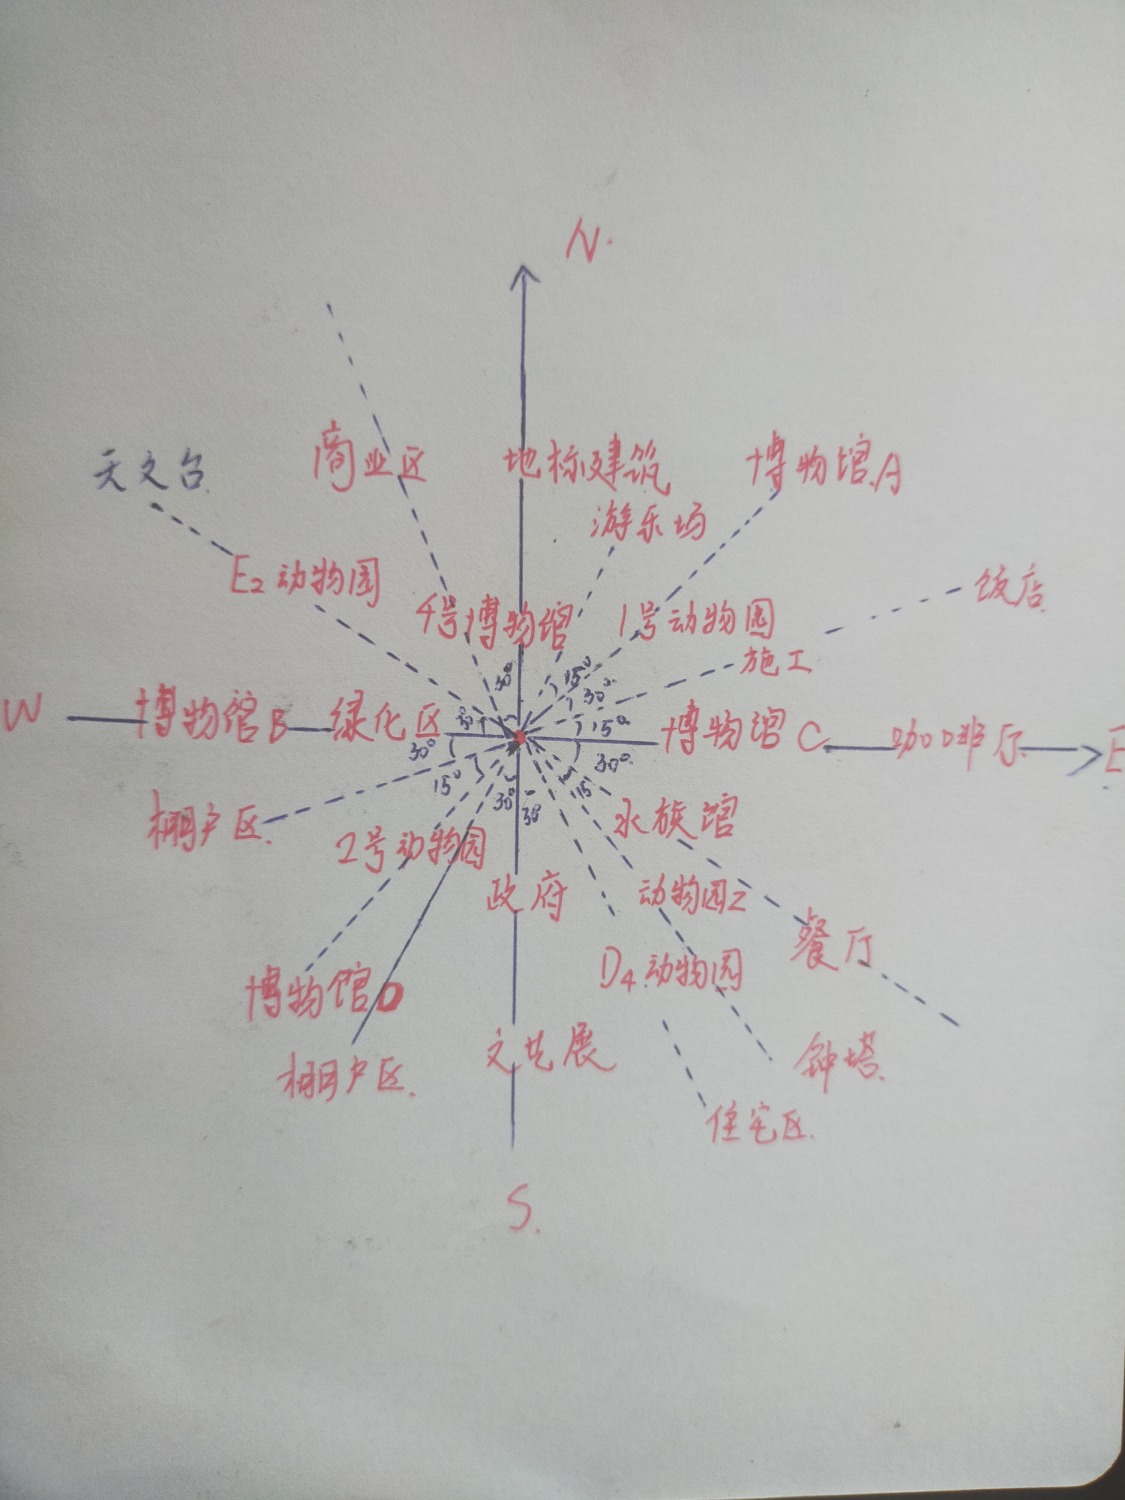 N.
天文台
商业区
地标建筑
博物馆A
游乐场
E2动物园
4号博物馆
1号动物园
饭店
施工
30°
15°
30°
W
博物馆B
绿化区
30°
15°
博物馆C
咖啡厅
E
30°
30°
15°
30°
30
15
棚户区
2号动物园
水族馆
政府
动物园2
餐厅
博物馆D
D4动物园
文艺展
钟塔
棚户区
住宅区
S.